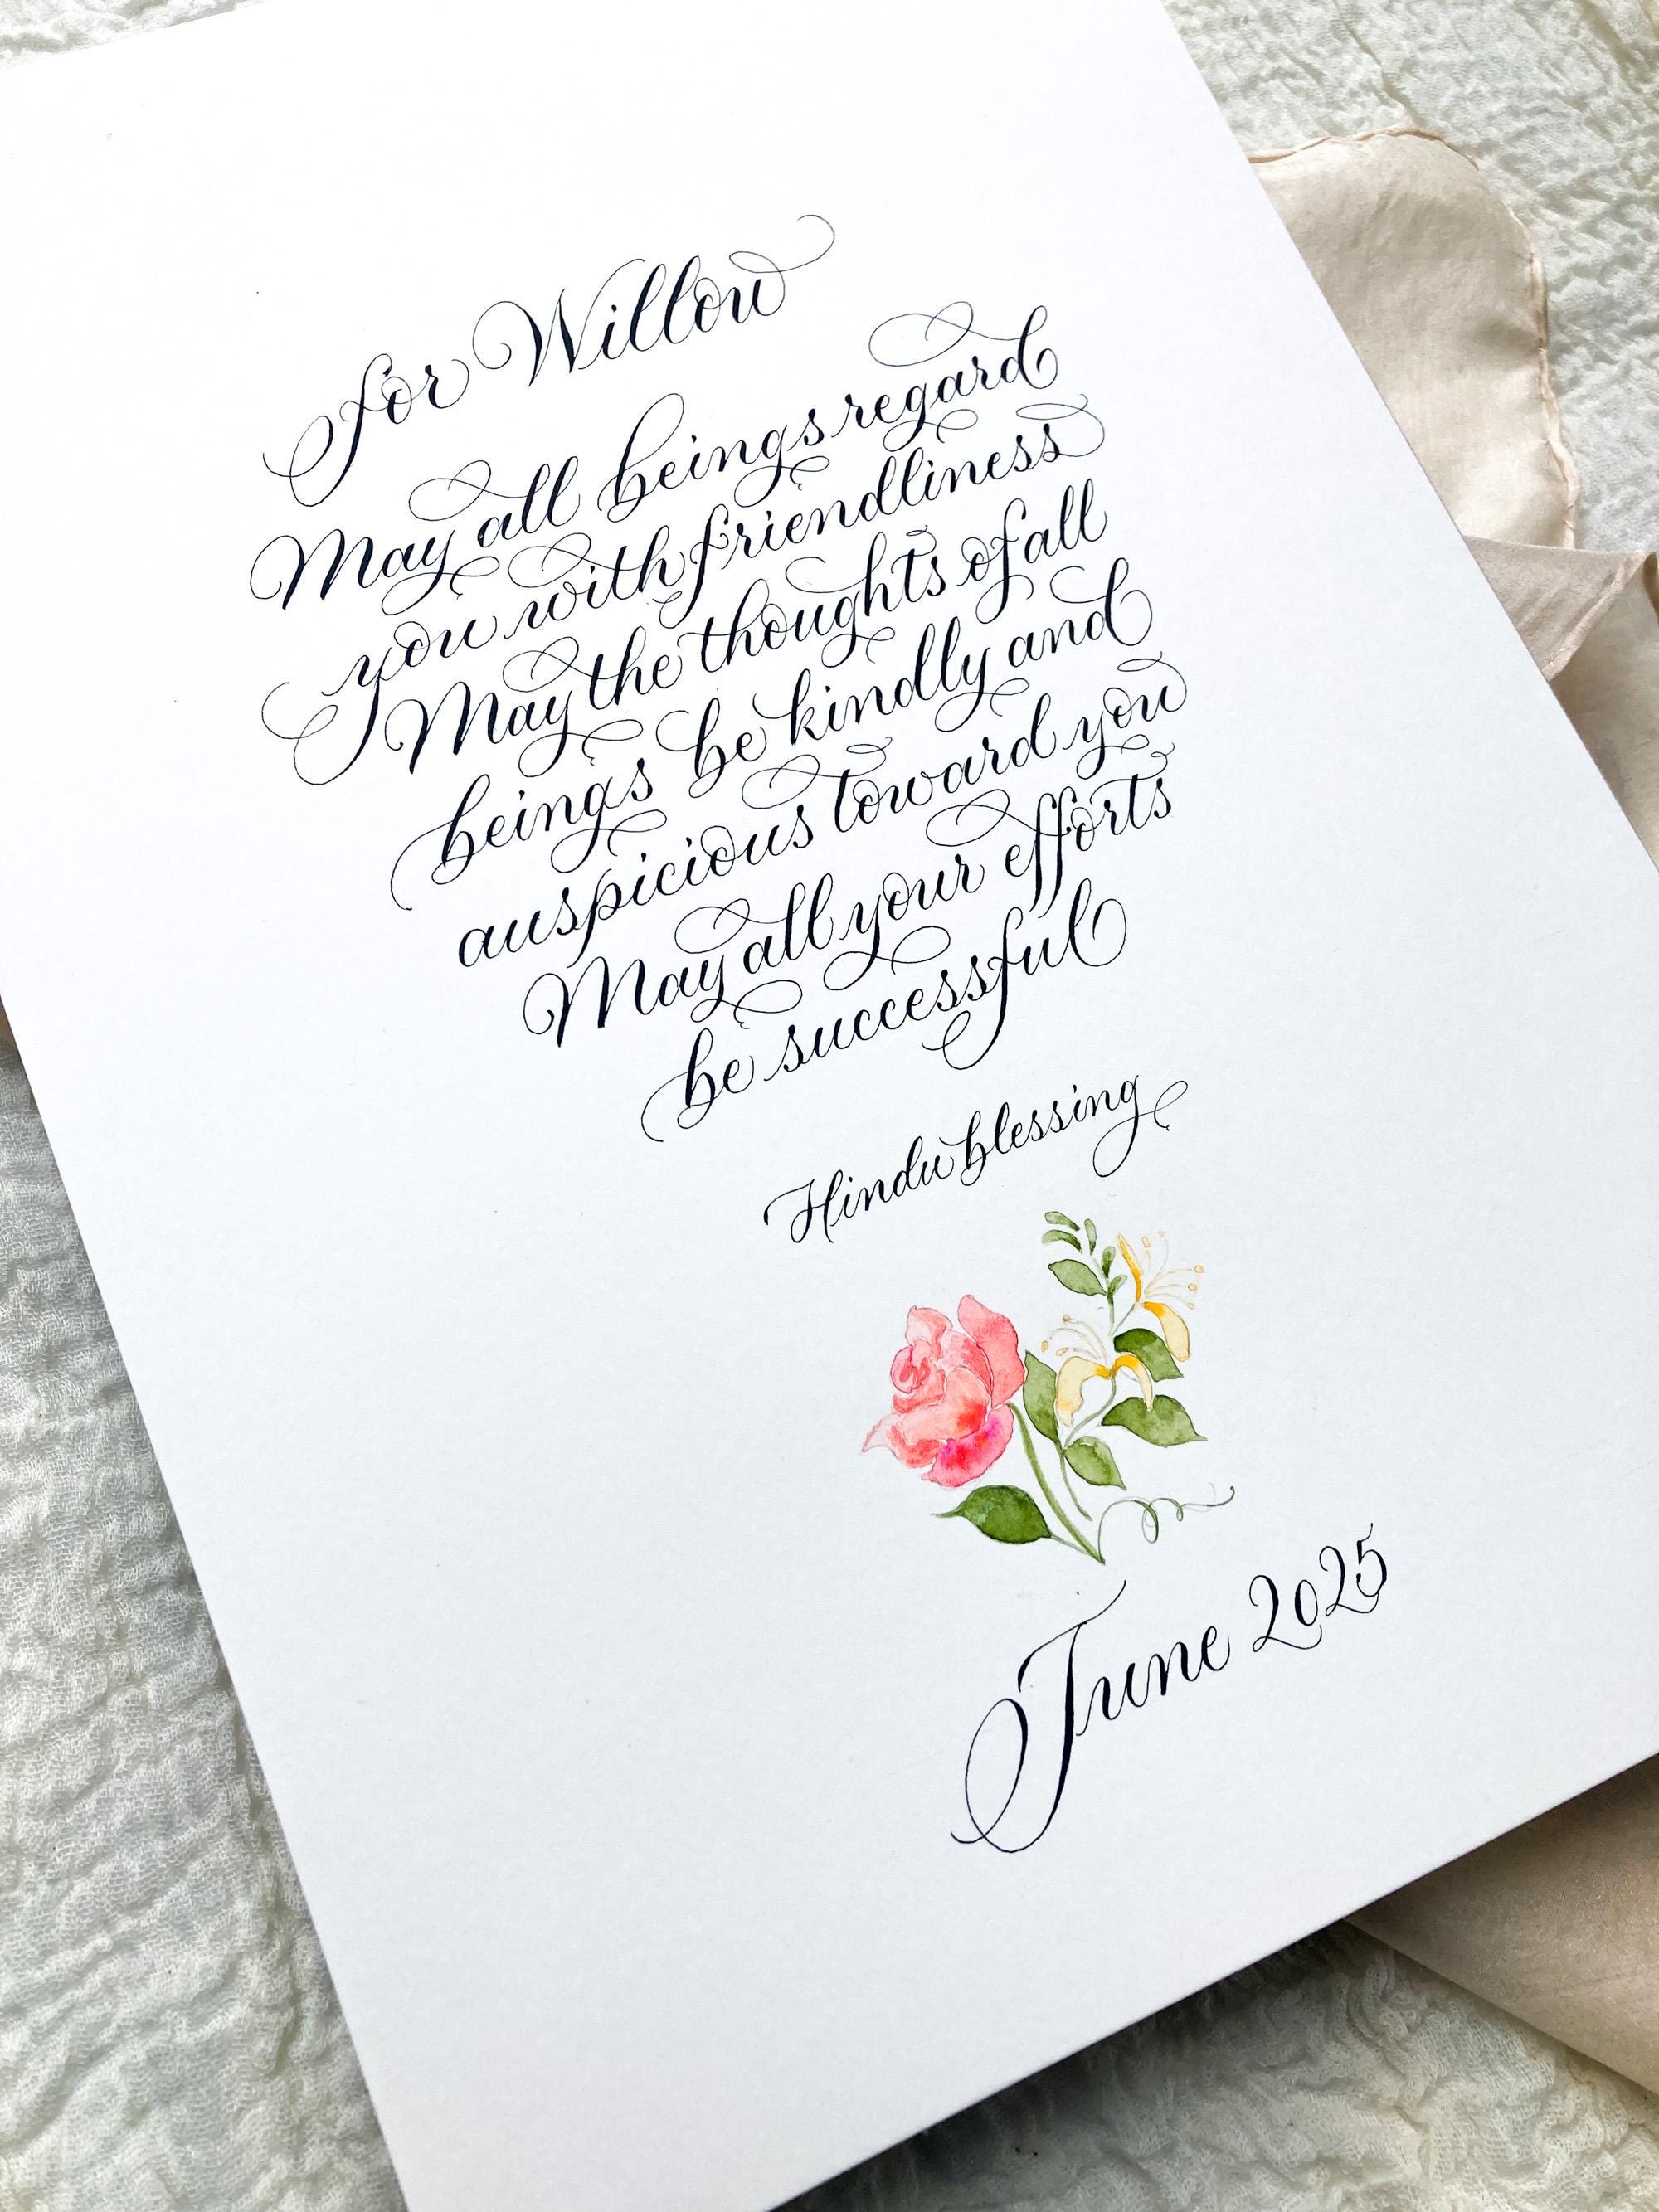 for Willow
May all beings regard
you with friendliness
May the thoughts of all
beings be kindly and
auspicious toward you
May all your efforts
be successful
Hindu blessing
June 2025